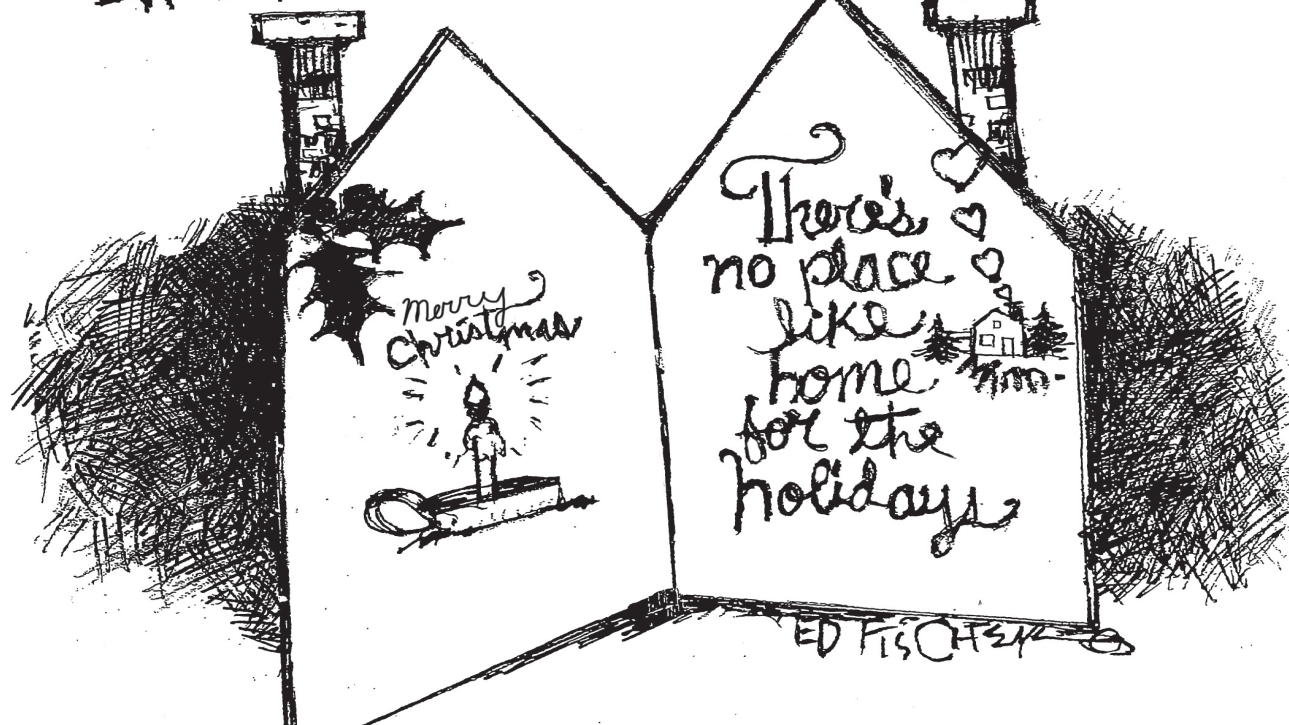 Merry
Christmas
There's
no place
like
home
for the
holidays
ED FISCHER